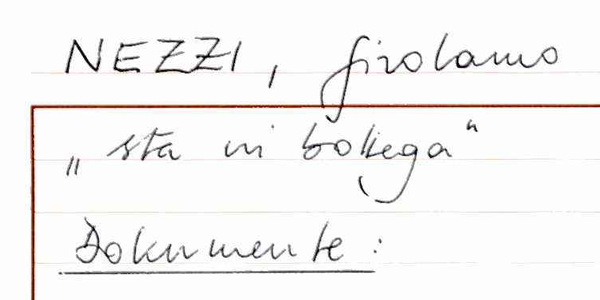 NEZZI, Girolamo
„sta in bottega"
Dokumente: